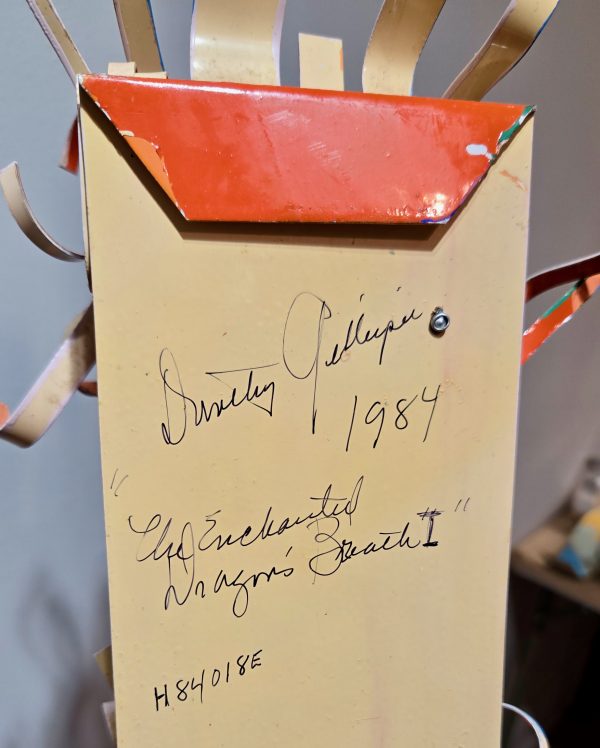 Dorothy Gillespie
1984
"The Enchanted
Dragon's Breath I"
H84018E